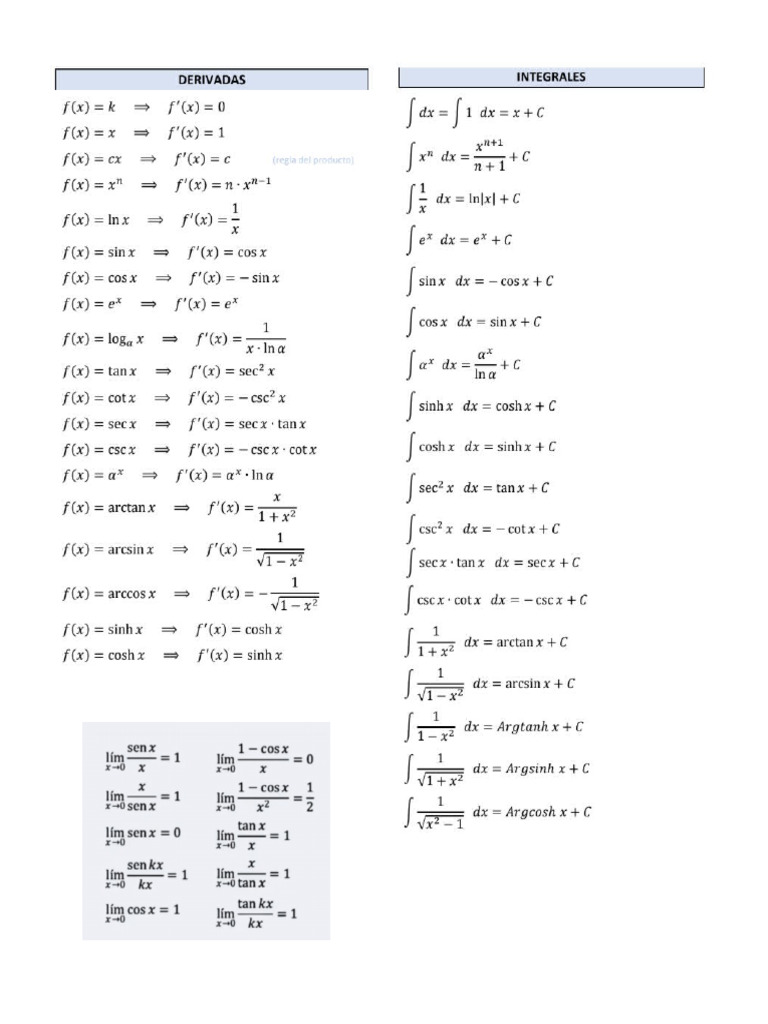 DERIVADAS
f(x) = k ⟹ f′(x) = 0
f(x) = x ⟹ f′(x) = 1
f(x) = cx ⟹ f′(x) = c (regla del producto)
f(x) = xⁿ ⟹ f′(x) = n · xⁿ⁻¹
f(x) = ln x ⟹ f′(x) = 1/x
f(x) = sin x ⟹ f′(x) = cos x
f(x) = cos x ⟹ f′(x) = − sin x
f(x) = eˣ ⟹ f′(x) = eˣ
f(x) = log_α x ⟹ f′(x) = 1/(x · ln α)
f(x) = tan x ⟹ f′(x) = sec² x
f(x) = cot x ⟹ f′(x) = − csc² x
f(x) = sec x ⟹ f′(x) = sec x · tan x
f(x) = csc x ⟹ f′(x) = − csc x · cot x
f(x) = αˣ ⟹ f′(x) = αˣ · ln α
f(x) = arctan x ⟹ f′(x) = x/(1 + x²)
f(x) = arcsin x ⟹ f′(x) = 1/√(1 − x²)
f(x) = arccos x ⟹ f′(x) = − 1/√(1 − x²)
f(x) = sinh x ⟹ f′(x) = cosh x
f(x) = cosh x ⟹ f′(x) = sinh x
lím x→0 sen x/x = 1 lím x→0 (1 − cos x)/x = 0
lím x→0 x/sen x = 1 lím x→0 (1 − cos x)/x² = 1/2
lím x→0 sen x = 0 lím x→0 tan x/x = 1
lím x→0 sen kx/kx = 1 lím x→0 x/tan x = 1
lím x→0 cos x = 1 lím x→0 tan kx/kx = 1
INTEGRALES
∫ dx = ∫ 1 dx = x + C
∫ xⁿ dx = xⁿ⁺¹/(n + 1) + C
∫ 1/x dx = ln|x| + C
∫ eˣ dx = eˣ + C
∫ sin x dx = − cos x + C
∫ cos x dx = sin x + C
∫ αˣ dx = αˣ/ln α + C
∫ sinh x dx = cosh x + C
∫ cosh x dx = sinh x + C
∫ sec² x dx = tan x + C
∫ csc² x dx = − cot x + C
∫ sec x · tan x dx = sec x + C
∫ csc x · cot x dx = − csc x + C
∫ 1/(1 + x²) dx = arctan x + C
∫ 1/√(1 − x²) dx = arcsin x + C
∫ 1/(1 − x²) dx = Argtanh x + C
∫ 1/√(1 + x²) dx = Argsinh x + C
∫ 1/√(x² − 1) dx = Argcosh x + C